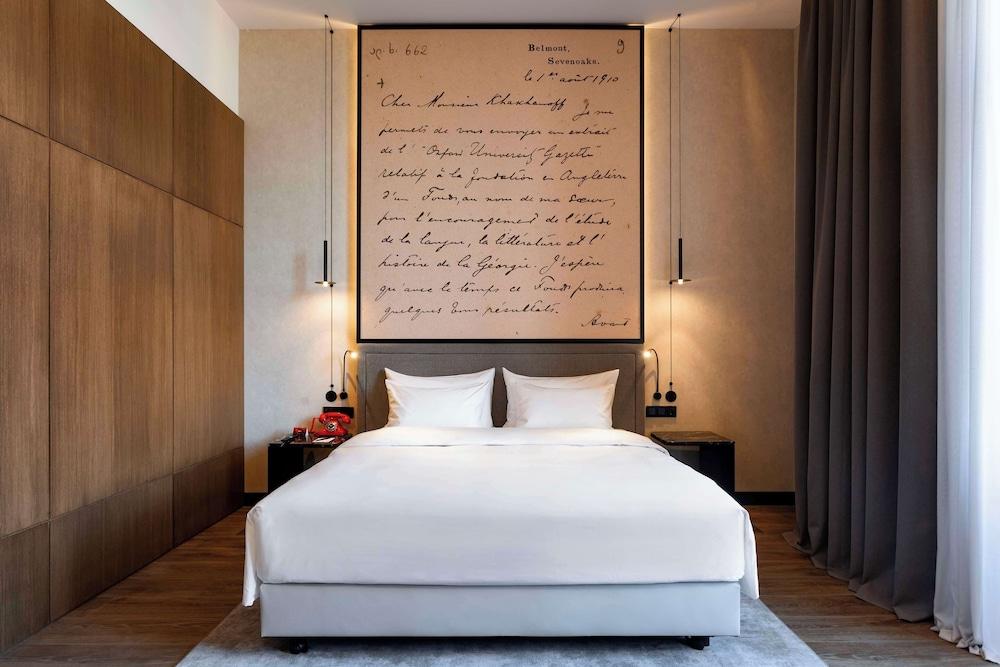 b. 662
Belmont, 9
Sevenoaks.
le 1er août 1910
Cher Monsieur Khakhanoff Je me
permets de vous envoyer un extrait
de l' "Oxford University Gazette"
relatif à la fondation en Angleterre
d'un Fonds, au nom de ma sœur,
pour l'encouragement de l'étude
de la langue, la littérature et l'
histoire de la Géorgie. J'espère
qu'avec le temps ce Fonds produira
quelques bons résultats.
Avant